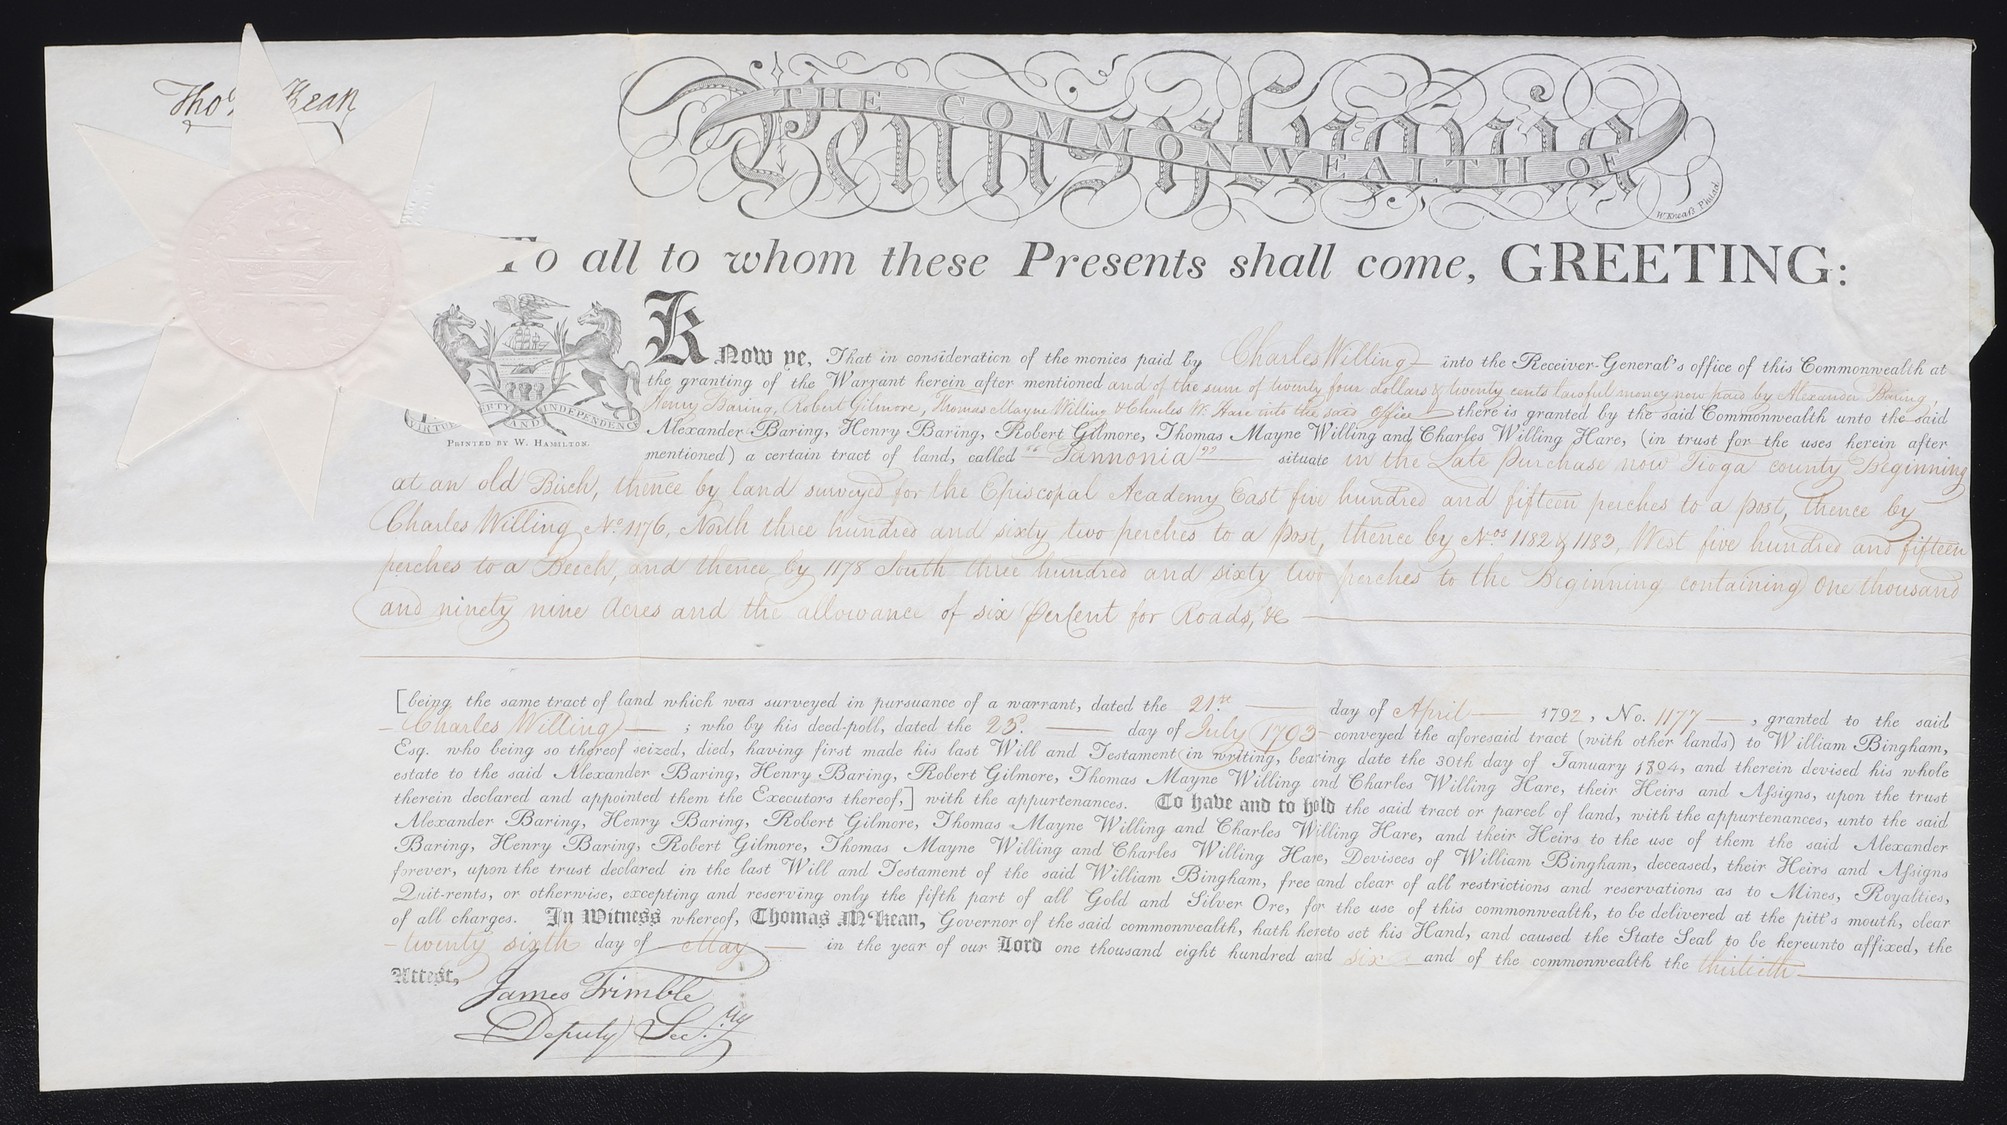 Tho Kean
THE COMMONWEALTH OF
Pennsylvania
W. Kneass Philad.
To all to whom these Presents shall come, GREETING:
VIRTUE LIBERTY AND INDEPENDENCE
PRINTED BY W. HAMILTON.
Know ye, That in consideration of the monies paid by Charles Willing into the Receiver-General's office of this Commonwealth at
the granting of the Warrant herein after mentioned and of the sum of twenty four dollars & twenty cents lawful money now paid by Alexander Baring,
Henry Baring, Robert Gilmore, Thomas Mayne Willing & Charles W. Hare into the said office there is granted by the said Commonwealth unto the said
Alexander Baring, Henry Baring, Robert Gilmore, Thomas Mayne Willing and Charles Willing Hare, (in trust for the uses herein after
mentioned) a certain tract of land, called "Pannonia" situate in the Late Purchase now Tioga county Beginning
at an old Birch, thence by land surveyed for the Episcopal Academy East five hundred and fifteen perches to a post, thence by
Charles Willing No. 1176, North three hundred and sixty two perches to a Post, thence by Nos 1182 & 1183, West five hundred and fifteen
perches to a Beech, and thence by 1178 South three hundred and sixty two perches to the Beginning containing One thousand
and ninety nine Acres and the allowance of six PerCent for Roads, &c
[being the same tract of land which was surveyed in pursuance of a warrant, dated the 21st day of April 1792, No. 1177, granted to the said
Charles Willing; who by his deed-poll, dated the 25. day of July 1793 conveyed the aforesaid tract (with other lands) to William Bingham,
Esq. who being so thereof seized, died, having first made his last Will and Testament in writing, bearing date the 30th day of January 1804, and therein devised his whole
estate to the said Alexander Baring, Henry Baring, Robert Gilmore, Thomas Mayne Willing and Charles Willing Hare, their Heirs and Assigns, upon the trust
therein declared and appointed them the Executors thereof,] with the appurtenances. To have and to hold the said tract or parcel of land, with the appurtenances, unto the said
Alexander Baring, Henry Baring, Robert Gilmore, Thomas Mayne Willing and Charles Willing Hare, and their Heirs to the use of them the said Alexander
Baring, Henry Baring, Robert Gilmore, Thomas Mayne Willing and Charles Willing Hare, Devisees of William Bingham, deceased, their Heirs and Assigns
forever, upon the trust declared in the last Will and Testament of the said William Bingham, free and clear of all restrictions and reservations as to Mines, Royalties,
Quit-rents, or otherwise, excepting and reserving only the fifth part of all Gold and Silver Ore, for the use of this commonwealth, to be delivered at the pitt's mouth, clear
of all charges. In Witness whereof, Thomas M'Kean, Governor of the said commonwealth, hath hereto set his Hand, and caused the State Seal to be hereunto affixed, the
twenty sixth day of May in the year of our Lord one thousand eight hundred and six and of the commonwealth the thirtieth
Attest,
James Trimble
Deputy Sec.ry